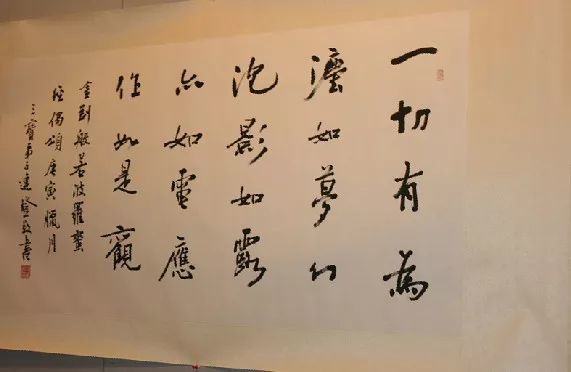 一切有為
灋如夢幻
泡影如露
亦如電應
作如是觀
金剛般若波羅蜜
經偈頌庚寅臘月
三寶弟子敬書